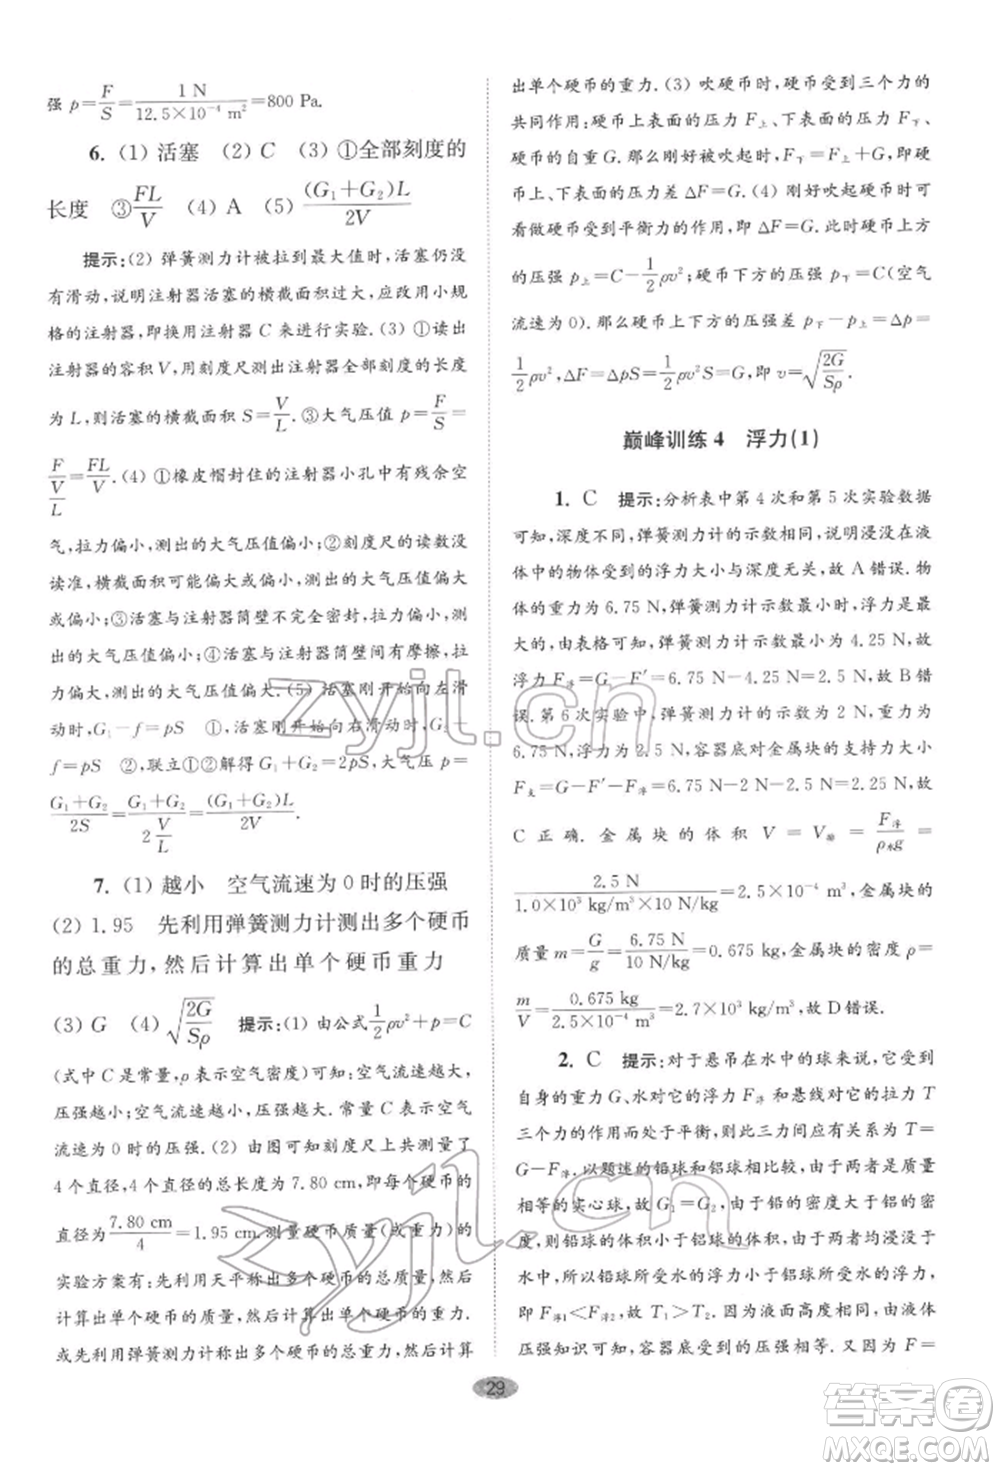 强 p=F/S=1 N/(12.5×10⁻⁴ m²)=800 Pa.
6. (1) 活塞 (2) C (3) ①全部刻度的
长度 ③FL/V (4) A (5) (G₁+G₂)L/2V
提示:(2) 弹簧测力计被拉到最大值时,活塞仍没
有滑动,说明注射器活塞的横截面积过大,应改用小规
格的注射器,即换用注射器 C 来进行实验. (3) ①读出
注射器的容积 V,用刻度尺测出注射器全部刻度的长度
为 L,则活塞的横截面积 S=V/L. ③大气压值 p=F/S=
F/(V/L)=FL/V. (4) ①橡皮帽封住的注射器小孔中有残余空
气,拉力偏小,测出的大气压值偏小;②刻度尺的读数没
读准,横截面积可能偏大,测出的大气压值偏小,拉力偏
小;③活塞与注射器筒壁不完全密封,拉力偏小,测
出的大气压值偏小;④活塞与注射器筒壁间有摩擦,拉力
偏大,测出的大气压值偏大. (5) 活塞刚开始向左滑
动时,G₁-f=pS ①,活塞刚开始向右滑动时,G₂+
f=pS ②,联立①②解得 G₁+G₂=2pS,大气压值 p=
(G₁+G₂)/2S=(G₁+G₂)/(2 V/L)=(G₁+G₂)L/2V.
7. (1) 越小 空气流速为 0 时的压强
(2) 1.95 先利用弹簧测力计测出多个硬币
的总重力,然后计算出单个硬币重力
(3) G (4) √(2G/Sρ) 提示:(1) 由公式½ρv²+p=C
(式中 C 是常量,ρ表示空气密度)可知,空气流速越大,
压强越小;空气流速越小,压强越大. 常量 C 表示空气
流速为 0 时的压强. (2) 由图可知刻度尺上共测量了
4 个直径,4 个直径的总长度为 7.80 cm,即每个硬币的
直径为7.80 cm/4=1.95 cm. 测量硬币质量(或重力)的
实验方案有:先利用天平称出多个硬币的总质量,然后
计算出单个硬币的质量,最后计算出单个硬币的重力.
或先利用弹簧测力计称出多个硬币的总重力,然后计算
出单个硬币的重力. (3) 吹硬币时,硬币受到三个力的
共同作用:硬币上表面的压力 F上、下表面的压力 F下、硬
币的自重 G. 那么刚好被吹起时,F下=F上+G,即硬
币上、下表面的压力差 ΔF=G. (4) 刚好吹起硬币时可
看做硬币受到平衡力的作用,即 ΔF=G. 硬币上方
的压强 p上=C-½ρv²;硬币下方的压强 p下=C(空气
流速为 0). 那么硬币上下方的压强差 p下-p上=Δp=
½ρv²,ΔF=ΔpS=½ρv²S=G,即 v=√(2G/Sρ).
巅峰训练 4 浮力(1)
1. C 提示:分析表中第 4 次和第 5 次实验数据
可知,深度不同,弹簧测力计的示数相同,说明浸没在液
体中的物体受到的浮力大小与深度无关,故 A 错误. 物
体的重力为 6.75 N,弹簧测力计示数最小时,浮力是最
大的,由表格可知,弹簧测力计示数最小为 4.25 N,故
浮力 F浮=G-F′=6.75 N-4.25 N=2.5 N,故 B 错
误. 第 6 次实验中,弹簧测力计的示数为 2 N,重力为
6.75 N,浮力为 2.5 N,容器底对金属块的支持力大小
F支=G-F′-F浮=6.75 N-2 N-2.5 N=2.25 N,故
C 正确. 金属块的体积 V=V排=F浮/ρ水g=
2.5 N/(1.0×10³ kg/m³×10 N/kg)=2.5×10⁻⁴ m³,金属块的
质量 m=G/g=6.75 N/(10 N/kg)=0.675 kg,金属块的密度 ρ=
m/V=0.675 kg/(2.5×10⁻⁴ m³)=2.7×10³ kg/m³,故 D 错误.
2. C 提示:对于悬吊在水中的球来说,它受到
自身的重力 G、水对它的浮力 F浮和悬线对它的拉力 T
三个力的作用而处于平衡,则此三力间应有关系为 T=
G-F浮. 以题述的铅球和铝球相比较,由于两者是质量
相等的实心球,故 G₁=G₂. 由于铅的密度大于铝的密
度,则铅球的体积小于铝球的体积,由于两者均浸没于
水中,所以铅球所受水的浮力小于铝球所受水的浮力,
即 F浮1<F浮2,故 T₁>T₂. 因为液面高度相同,由液体
压强知识可知容器底所受水的压强相等. 又因为 F=
29
zyjl.cn
zyjl.cn
答案圈
MXQE.COM